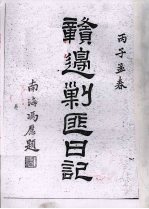 丙子孟春
贛邊剿匪日記
南海馮愿題